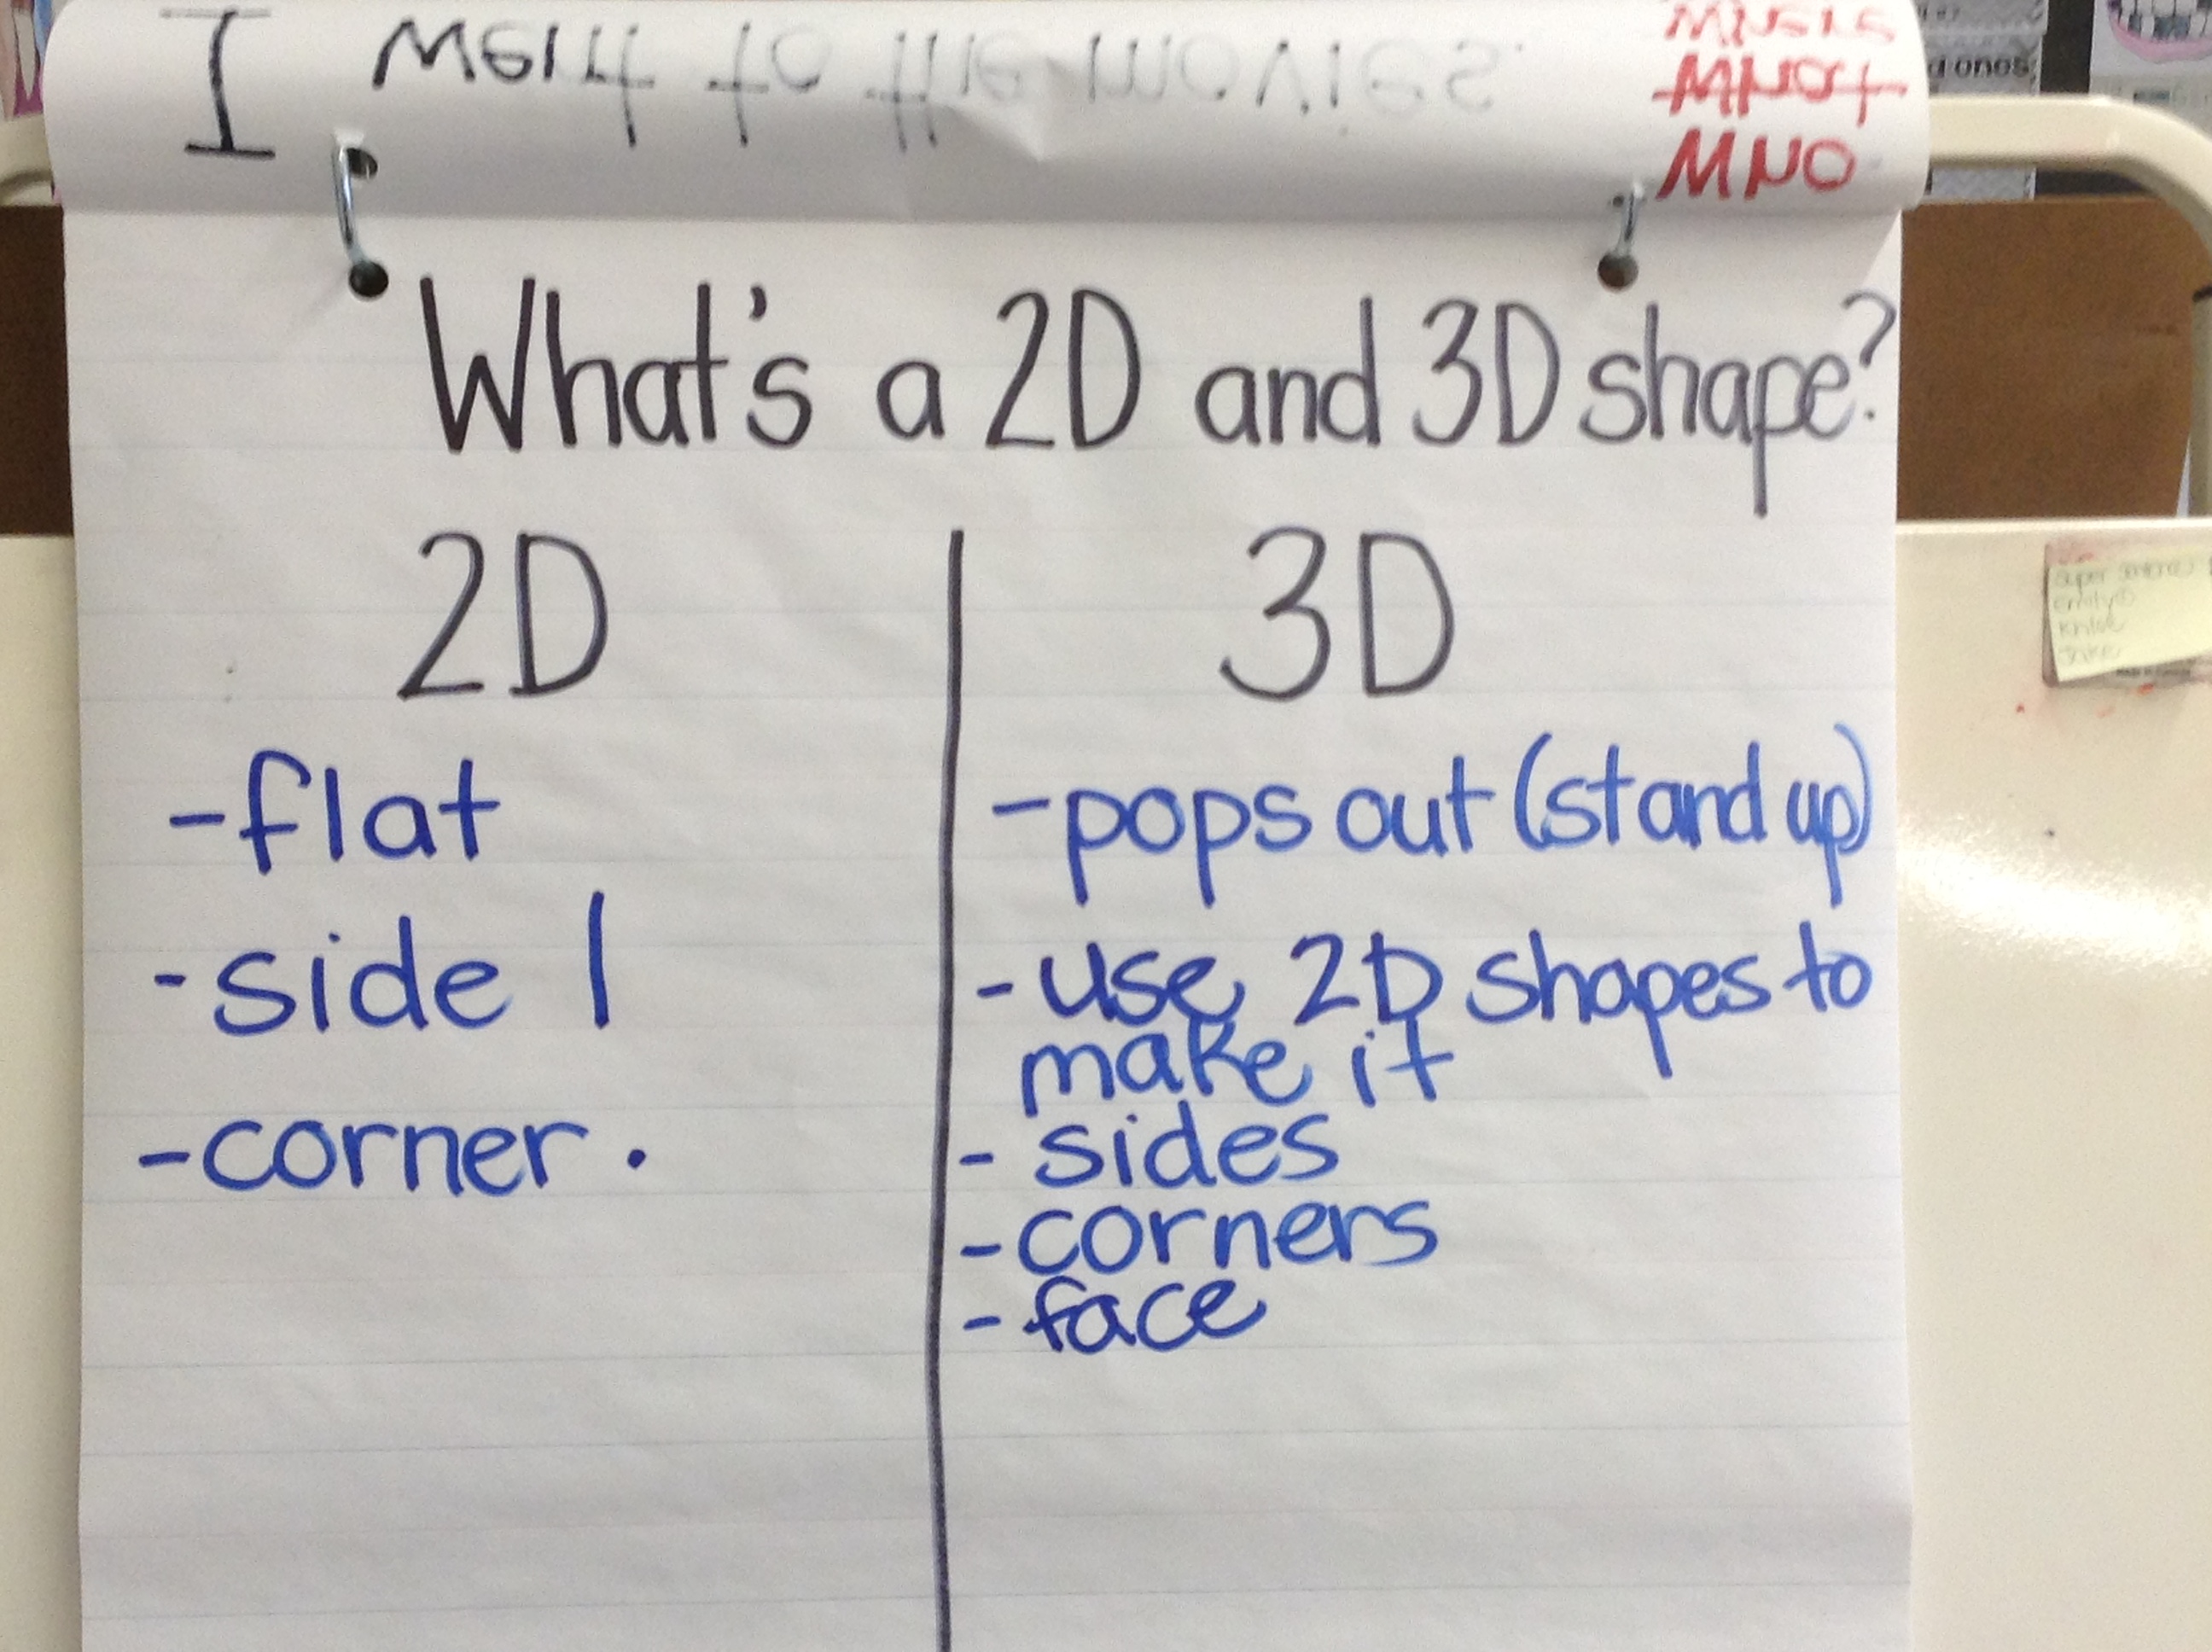 I went to the movies.
MNO
d ones
What's a 2D and 3D shape?
2D
-flat
-side |
-corner .
3D
-pops out (stand up)
-use 2D shapes to
make it
- sides
-corners
-face
super
emily
Khloe
Jake